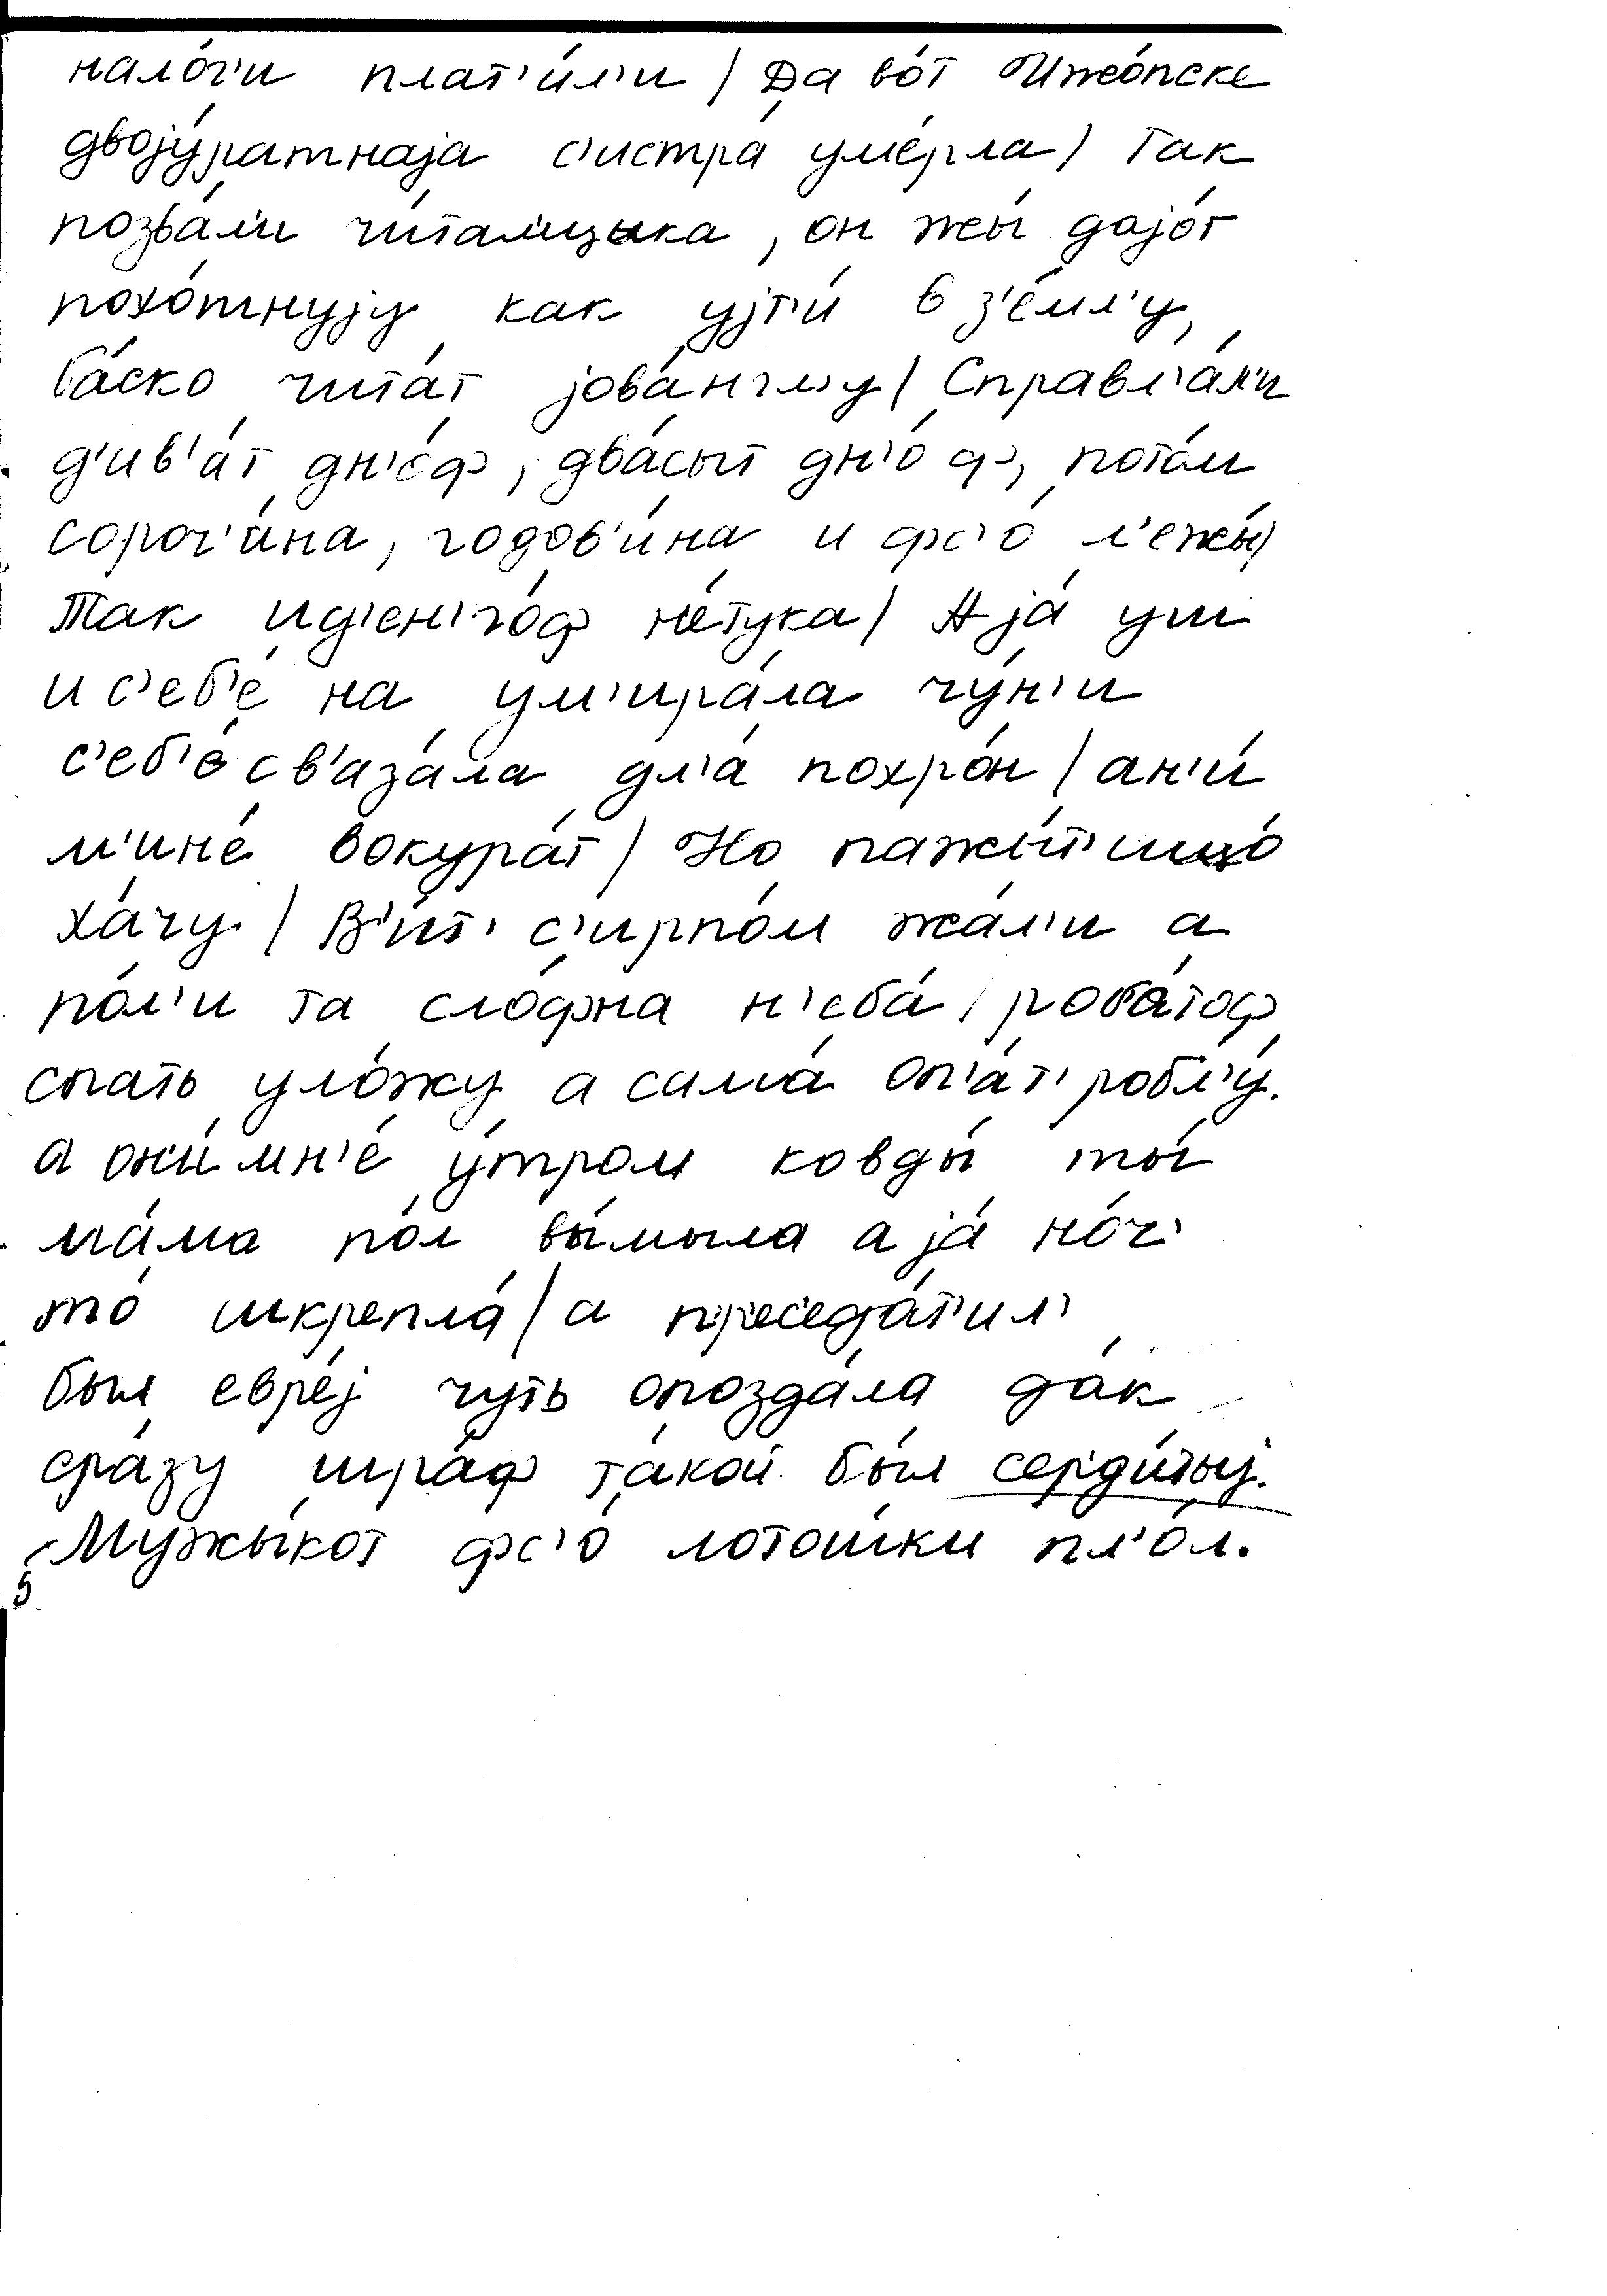 нало́г'и плат'и́л'и / Да во́т Ижо́пске
двоjу́ратнаjа с'истра́ уме́рла / Так
позва́ли чи́тал'щыка, он жы́ даjо́т
похо́тнуjу как уjт'и́ в з'е́мл'у,
ба́ско чита́т jова́нгл'у / Справл'а́л'и
д'ив'а́т дн'е́ф, два́сыт дн'о́ф, пото́м
сороч'и́на, годов'и́на и фс'о́ л'ежы́ /
Так ид'ен'го́ф не́тука / А jа́ уш
и с'еб'е́ на ум'ира́ла чу́н'и
с'еб'е́ св'аза́ла дл'а́ похро́н / ан'и́
м'ине́ вокура́т / Но пажы́т' ишшо́
ха́чу / В'ит' с'ирпо́м жа́л'и а
по́л'и та сло́фна н'еба́ / роба́тоф
спать уло́жу а сама́ оп'а́т' робл'у́.
а они́ мн'е́ у́тром ковды́ ты́
ма́ма по́л вы́мыла а jа́ но́ч'
то́ шкрепла́ / а пр'еседа́т'ил'
был евре́j чуть опозда́ла да́к
сра́зу шра́ф та́кой бы́л серди́тыj.
Мужы́кот фс'о́ лото́шки пл'о́л.
5